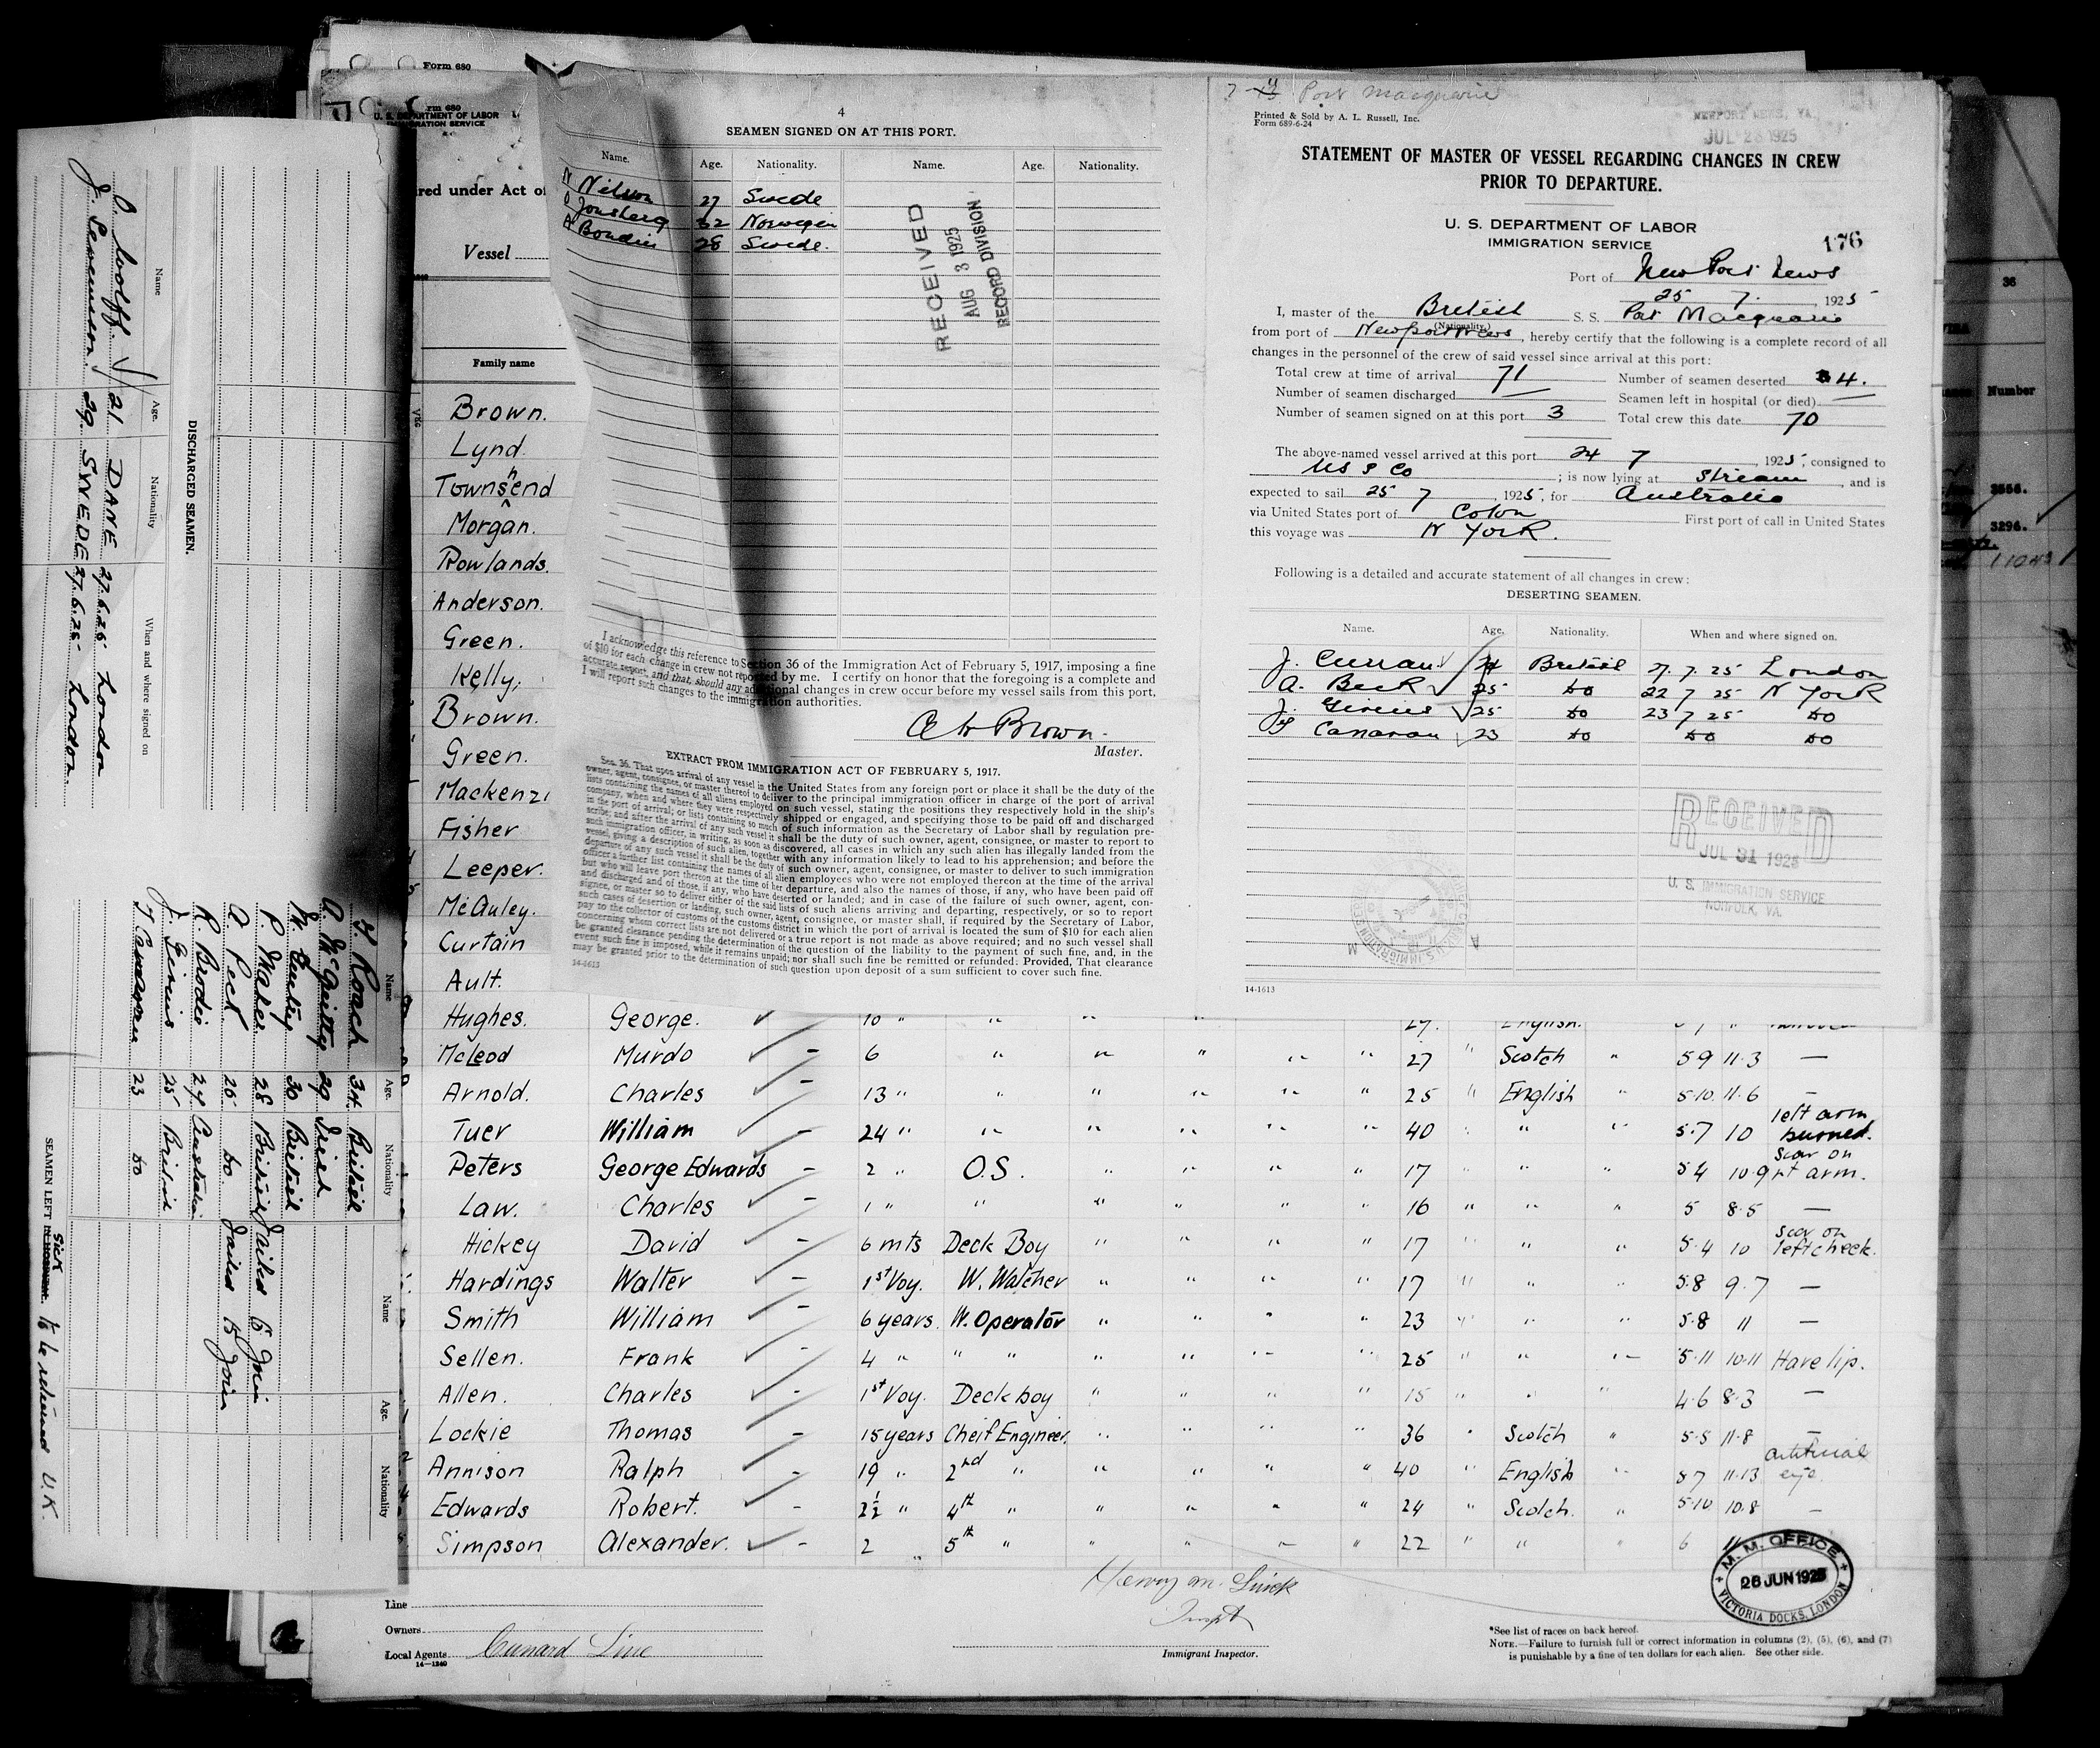 Form 680
rm 680
U. S. DEPARTMENT OF LABOR
IMMIGRATION SERVICE
red under Act of
Vessel
Family name
4
SEAMEN SIGNED ON AT THIS PORT.
Name. Age. Nationality. Name. Age. Nationality.
N Nilson 27 Swede
Jonsberg 32 Norwegin
A Boudin 28 Swede.
RECEIVED
AUG 3 1925
RECORD DIVISION
I acknowledge this reference to Section 36 of the Immigration Act of February 5, 1917, imposing a fine
of $10 for each change in crew not reported by me. I certify on honor that the foregoing is a complete and
accurate report, and that, should any additional changes in crew occur before my vessel sails from this port,
I will report such changes to the immigration authorities.
Brown.
Master.
EXTRACT FROM IMMIGRATION ACT OF FEBRUARY 5, 1917.
Sec. 36. That upon arrival of any vessel in the United States from any foreign port or place it shall be the duty of the
owner, agent, consignee, or master thereof to deliver to the principal immigration officer in charge of the port of arrival
lists containing the names of all aliens employed on such vessel, stating the positions they respectively hold in the ship's
company, when and where they were respectively shipped or engaged, and specifying those to be paid off and discharged
in the port of arrival; or lists containing so much of such information as the Secretary of Labor shall by regulation pre-
scribe; and after the arrival of any such vessel it shall be the duty of such owner, agent, consignee, or master to report to
such immigration officer, in writing, as soon as discovered, all cases in which any such alien has illegally landed from the
vessel, giving a description of such alien, together with any information likely to lead to his apprehension; and before the
departure of any such vessel it shall be the duty of such owner, agent, consignee, or master to deliver to such immigration
officer a further list containing the names of all alien employees who were not employed thereon at the time of the arrival
but who will leave port thereon at the time of her departure, and also the names of those, if any, who have been paid off
and discharged and of those, if any, who have deserted or landed; and in case of the failure of such owner, agent, con-
signee, or master so to deliver either of the said lists of such aliens arriving and departing, respectively, or so to report
such cases of desertion or landing, such owner, agent, consignee, or master shall, if required by the Secretary of Labor,
pay to the collector of customs of the customs district in which the port of arrival is located the sum of $10 for each alien
concerning whom correct lists are not delivered or a true report is not made as above required; and no such vessel shall
be granted clearance pending the determination of the question of the liability to the payment of such fine, and, in the
event such fine is imposed, while it remains unpaid; nor shall such fine be remitted or refunded: Provided, That clearance
may be granted prior to the determination of such question upon deposit of a sum sufficient to cover such fine.
14-1613
Port Macquarie
Printed & Sold by A. L. Russell, Inc.
Form 689-6-24
NEWPORT NEWS, VA.
JUL 28 1925
STATEMENT OF MASTER OF VESSEL REGARDING CHANGES IN CREW
PRIOR TO DEPARTURE.
U. S. DEPARTMENT OF LABOR
IMMIGRATION SERVICE
176
Port of New Port News
25 7. , 1925
I, master of the British S. S. Port Macquarie
(Nationality.)
from port of Newport News, hereby certify that the following is a complete record of all
changes in the personnel of the crew of said vessel since arrival at this port:
Total crew at time of arrival 71 Number of seamen deserted 4.
Number of seamen discharged — Seamen left in hospital (or died) —
Number of seamen signed on at this port 3 Total crew this date 70
The above-named vessel arrived at this port 24 7 , 1925, consigned to
U S S Co ; is now lying at Stream , and is
expected to sail 25 7 , 1925, for Australia
via United States port of Colon First port of call in United States
this voyage was N York.
Following is a detailed and accurate statement of all changes in crew:
DESERTING SEAMEN.
Name. Age. Nationality. When and where signed on.
J. Curran 24 British 27.7.25 London
A. Beck 25 do 22 7 25 N York
J. Girius 25 do 23 7 25 do
Canavan 23 do do do
RECEIVED
JUL 31 1925
U. S. IMMIGRATION SERVICE
NORFOLK, VA.
14-1613
36
Number
3556.
3296.
Name Age. Nationality When and where signed on
O. Wolff. 21 DANE 27.6.25 London
J. Sevenson 29. SWEDE 27.6.25 London.
DISCHARGED SEAMEN.
Name Age. Nationality Name Age. Nationality
Roach 34. British
A. McGuitty 29 Irish
30 British
P. Maher 28 British Failed to Join
A. Peck 25 do. Failed to Join
R. Brodie 24 Australian
J. Girius 25 British
Canavan 23 do
SEAMEN LEFT IN HOSPITAL.
Sick to be returned U.K.
Brown.
Lynd.
Townshend
Morgan.
Rowlands.
Anderson.
Green.
Kelly.
Brown.
Green.
Mackenzi
Fisher
Leeper.
McAuley.
Curtain
Ault.
Hughes. George. 10 " " " " 27. English.
McLeod Murdo – 6 " " " " " 27 " Scotch " 5 9 11·3 —
Arnold. Charles – 13 " " " " " " 25 " English " 5·10 11·6 –
Tuer William – 24 " " " " " " 40 " " " 5·7 10 left arm burned.
Peters George Edwards – 2 " O.S. " " " " 17 " " " 5 4 10·9 scar on rt arm.
Law. Charles – 1 " " " " " " 16 " " " 5 8·5 —
Hickey David – 6 mts Deck Boy " " " " 17 " " " 5·4 10 scar on left cheek.
Hardings Walter – 1st Voy. W. Watcher " " " " 17 " " " 5·8 9·7 —
Smith William – 6 years. W. Operator " " " " 23 " " " 5·8 11 —
Sellen. Frank – 4 " " " " " " " 25 " " " 5·11 10·11 Hare lip.
Allen. Charles – 1st Voy. Deck boy " " " " 15 " " " 4·6 8·3 —
Lockie Thomas – 15 years Cheif Engineer. " " " " 36 " Scotch " 5·5 11·8 —
Annison Ralph – 19 " 2nd " " " " " 40 " English " 5 7 11·13 artificial eye.
Edwards Robert. – 2½ " 4th " " " " " 24 " Scotch. " 5·10 10·8 –
Simpson Alexander. – 2 " 5th " " " " " 22 " " " 6 11
M. M. OFFICE
26 JUN 1925
VICTORIA DOCKS, LONDON
Line
Owners
Local Agents Cunard Line
14—1240
Inspt
Immigrant Inspector.
*See list of races on back hereof.
NOTE.—Failure to furnish full or correct information in columns (2), (5), (6), and (7)
is punishable by a fine of ten dollars for each alien. See other side.